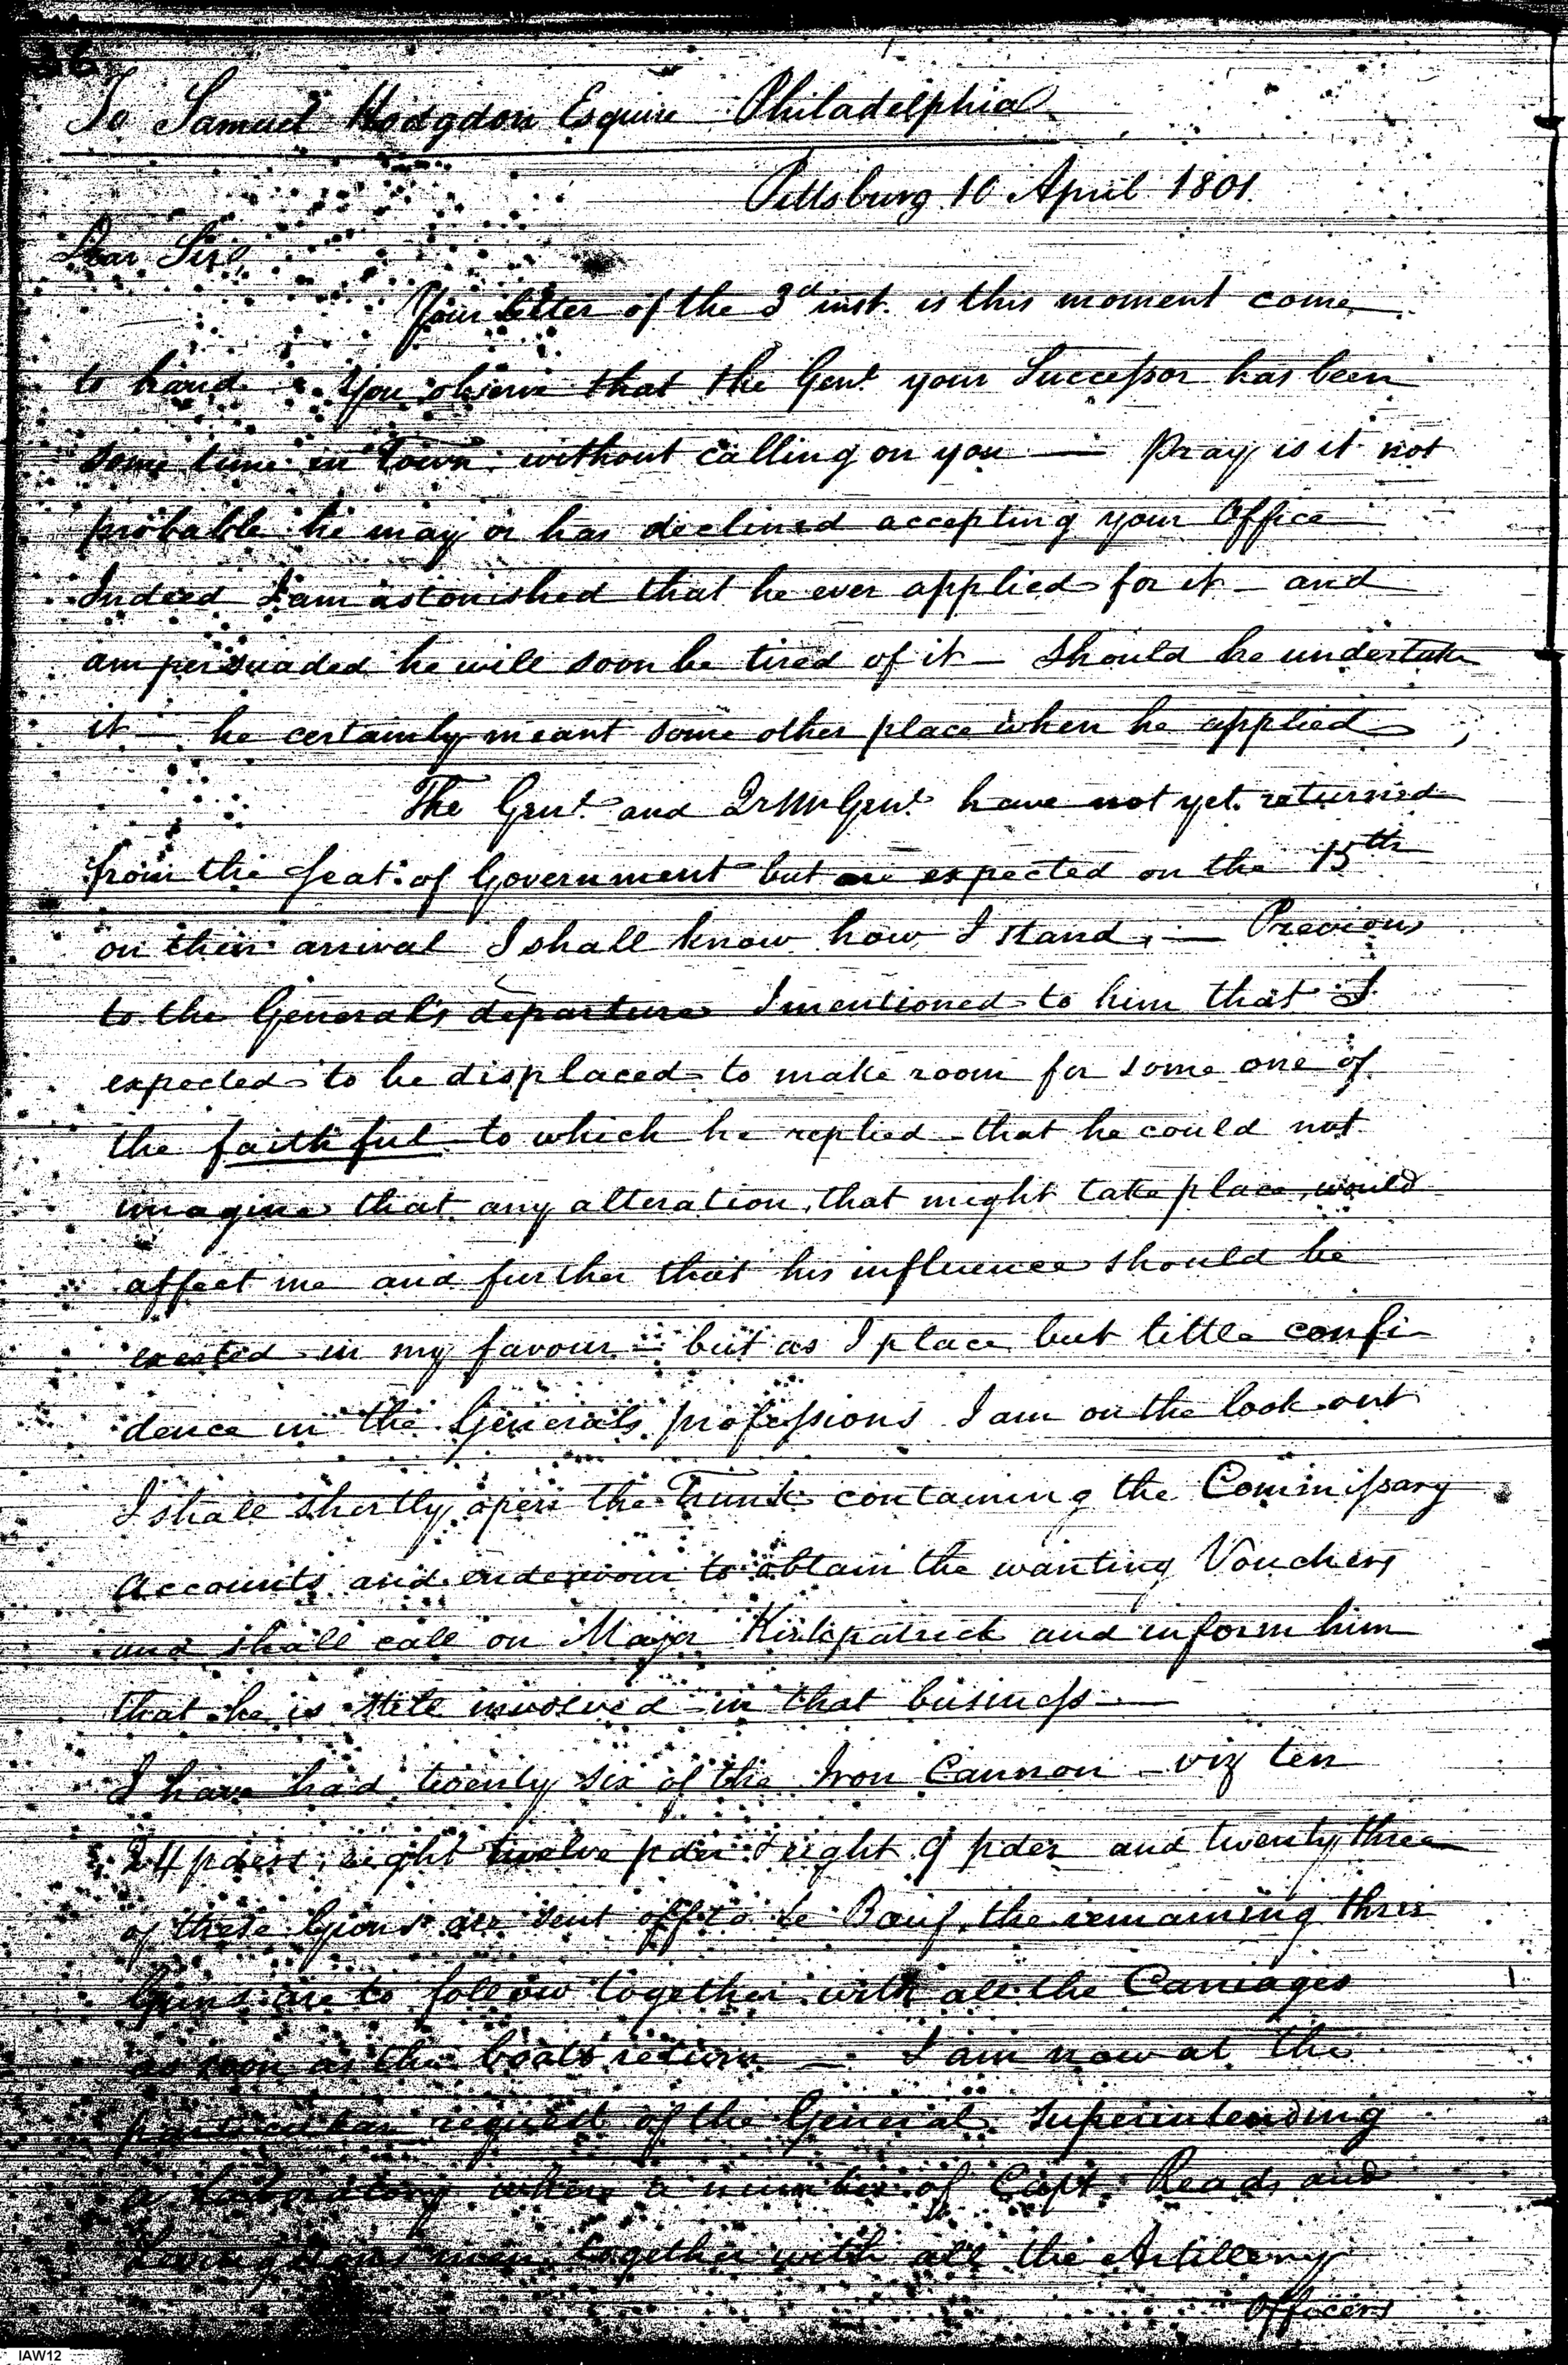 36
To Samuel Hodgdon Esquire Philadelphia
Pittsburg 10 April 1801.
Dear Sir,
Your letter of the 3d inst. is this moment come
to hand. You observe that the Genl. your Successor has been
some time in Town without calling on you — Pray is it not
probable he may or has declined accepting your Office
Indeed I am astonished that he ever applied for it — and
am persuaded he will soon be tired of it — Should he undertake
it — he certainly meant some other place when he applied
The Genl. and QrMrGenl. have not yet returned
from the seat of Government but are expected on the 15th
on their arrival I shall know how I stand. — Previous
to the General's departure I mentioned to him that I
expected to be displaced to make room for some one of
the faithful to which he replied that he could not
imagine that any alteration, that might take place, would
affect me and further that his influence should be
exerted in my favour — but as I place but little confi-
dence in the Generals professions I am on the look out
I shall shortly open the Trunk containing the Commissary
Accounts and endeavour to obtain the wanting Vouchers
and shall call on Major Kirkpatrick and inform him
that he is still involved in that business —
I have had twenty six of the Iron Cannon — viz ten
24 pders, eight twelve pder & eight 9 pder and twenty three
of these Guns are sent off to Le Bauf, the remaining three
Guns are to follow together with all the Carriages
as soon as the boats return — I am now at the
particular request of the General Superintending
a Laboratory where a number of Capt. Reads and
men together with all the Artillery
Officers
IAW12